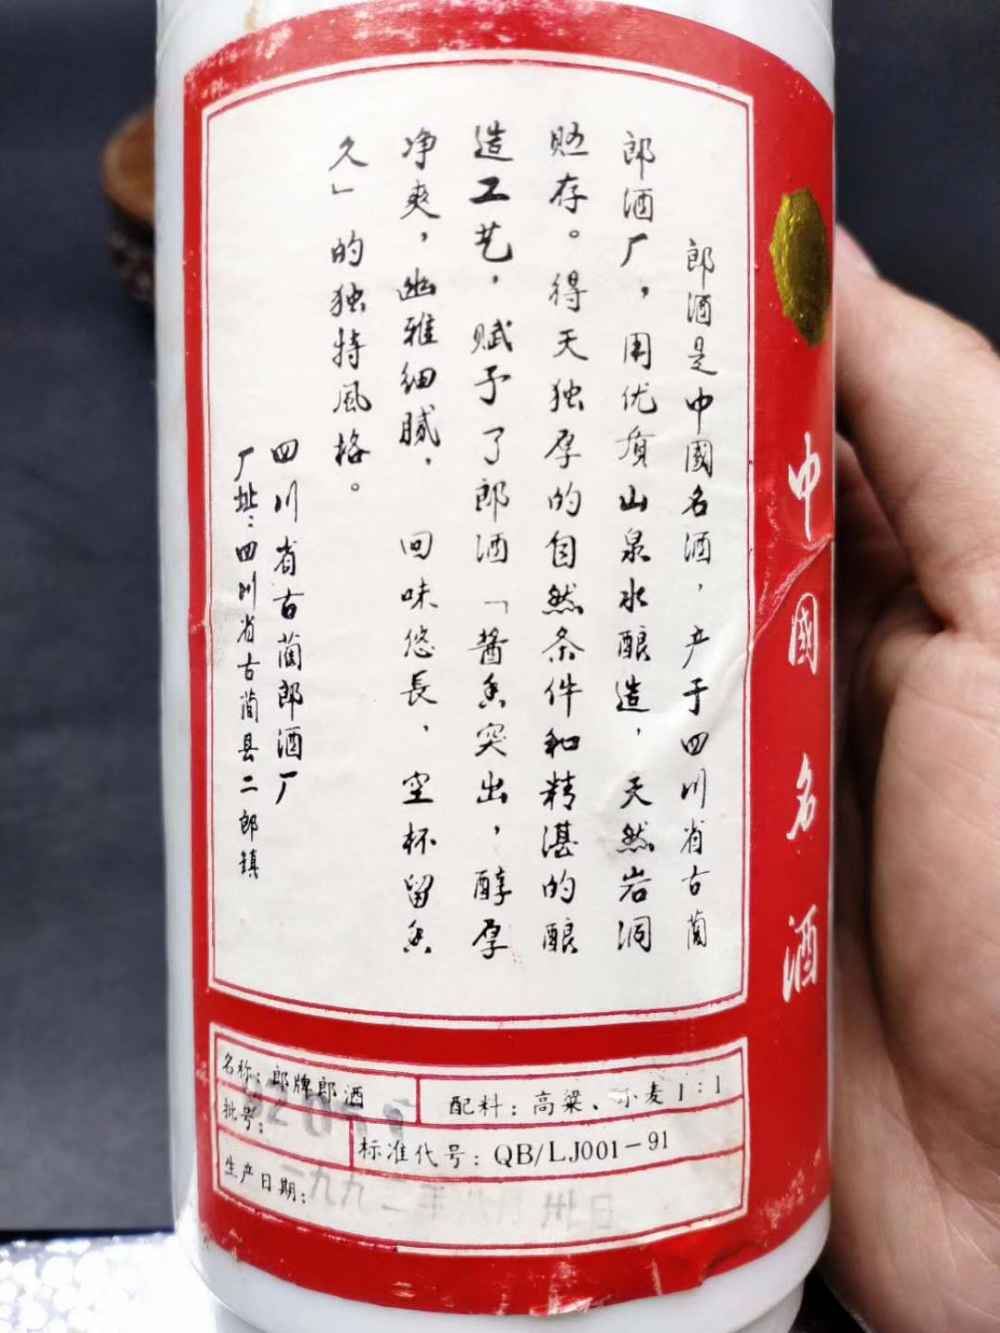 郎酒是中國名酒，产于四川省古蔺
郎酒厂，用优质山泉水酿造，天然岩洞
贮存。得天独厚的自然条件和精湛的酿
造工艺，赋予了郎酒「酱香突出，醇厚
净爽，幽雅细腻，回味悠長，空杯留香
久」的独特風格。
四川省古蔺郎酒厂
厂址：四川省古蔺县二郎镇
中國名酒
名称：郎牌郎酒
配料：高粱、小麦1：1
批号：
标准代号：QB/LJ001-91
生产日期：一九九二年八月卅日